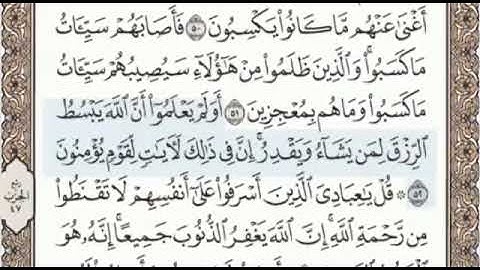 أَغْنَىٰ عَنْهُم مَّا كَانُوا۟ يَكْسِبُونَ ٥٠ فَأَصَابَهُمْ سَيِّـَٔاتُ
مَا كَسَبُوا۟ ۚ وَٱلَّذِينَ ظَلَمُوا۟ مِنْ هَـٰٓؤُلَآءِ سَيُصِيبُهُمْ سَيِّـَٔاتُ
مَا كَسَبُوا۟ وَمَا هُم بِمُعْجِزِينَ ٥١ أَوَلَمْ يَعْلَمُوٓا۟ أَنَّ ٱللَّهَ يَبْسُطُ
ٱلرِّزْقَ لِمَن يَشَآءُ وَيَقْدِرُ ۚ إِنَّ فِى ذَٰلِكَ لَـَٔايَـٰتٍ لِّقَوْمٍ يُؤْمِنُونَ
٥٢ ۞ قُلْ يَـٰعِبَادِىَ ٱلَّذِينَ أَسْرَفُوا۟ عَلَىٰٓ أَنفُسِهِمْ لَا تَقْنَطُوا۟
مِن رَّحْمَةِ ٱللَّهِ ۚ إِنَّ ٱللَّهَ يَغْفِرُ ٱلذُّنُوبَ جَمِيعًا ۚ إِنَّهُۥ هُوَ
ربع
الحزب
٤٧